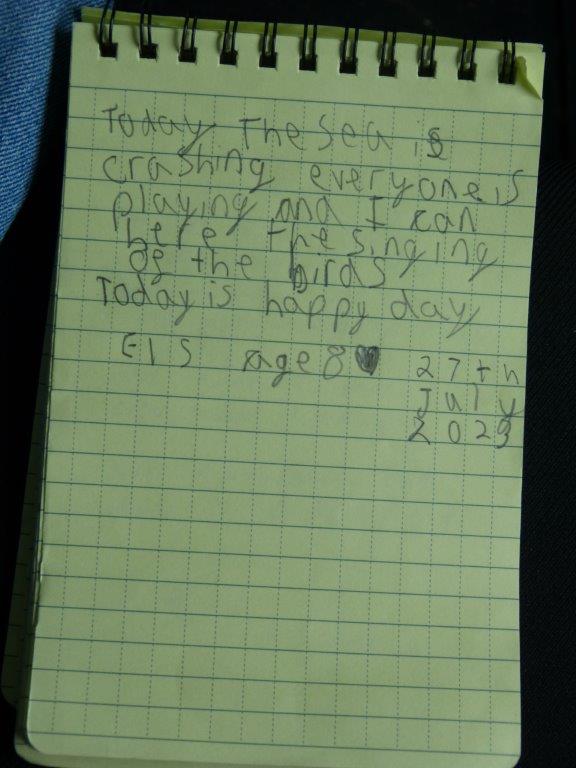 Today The sea is
crashing everyone is
playing and I can
here the singing
of the birds
Today is happy day
ElS age 8
27th
July
2023